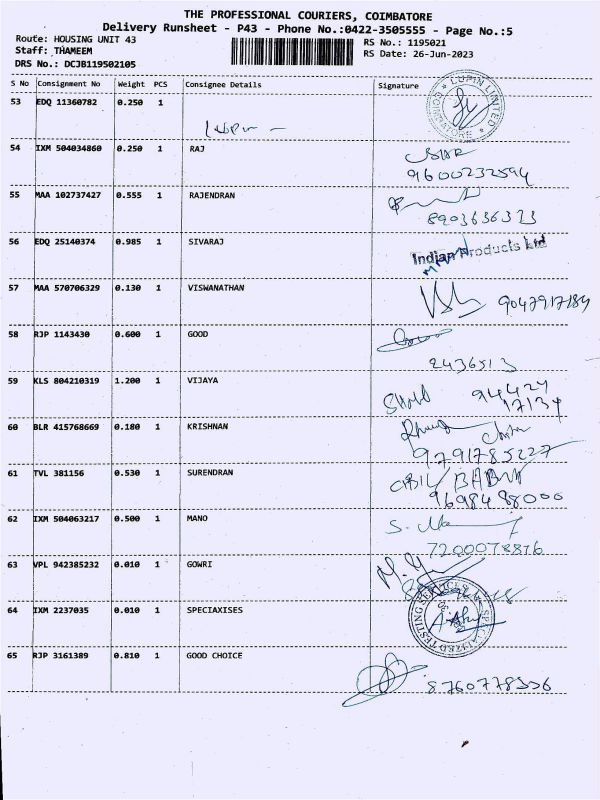 THE PROFESSIONAL COURIERS, COIMBATORE
Delivery Runsheet - P43 - Phone No.:0422-3505555 - Page No.:5
Route: HOUSING UNIT 43
RS No.: 1195021
Staff: THAMEEM
RS Date: 26-Jun-2023
DRS No.: DCJB119502105
S No Consignment No Weight PCS Consignee Details Signature
53 EDQ 11360782 0.250 1
LUPIN LIMITED COIMBATORE
54 IXM 504034860 0.250 1 RAJ
9600232594
55 MAA 102737427 0.555 1 RAJENDRAN
8903636323
56 EDQ 25140374 0.985 1 SIVARAJ
Indian Products Ltd
57 MAA 570706329 0.130 1 VISWANATHAN
9047917184
58 RJP 1143430 0.600 1 GOOD
2436513
59 KLS 804210319 1.200 1 VIJAYA
94424
17134
60 BLR 415768669 0.180 1 KRISHNAN
9791785227
61 TVL 381156 0.530 1 SURENDRAN
BABU
9698488000
62 IXM 504063217 0.500 1 MANO
7200078876
63 VPL 942385232 0.010 1 GOWRI
64 IXM 2237035 0.010 1 SPECIAXISES
65 RJP 3161389 0.810 1 GOOD CHOICE
8760778536